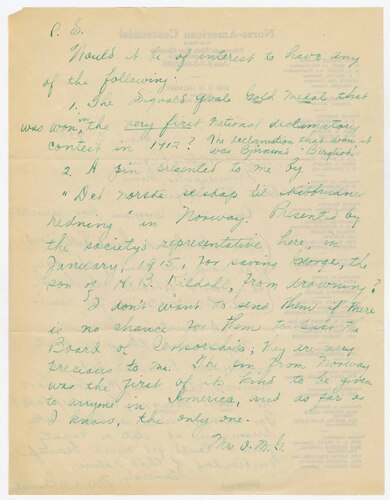 P. S.
Would it be of interest to have any
of the following:
1. The Sigvald Qvale Gold Medal that
was won in the very first National declamatory
contest in 1912? The declamation that won it
was Bjornson's "Bergliot."
2. A pin presented to me by
"Det norske selskap til skibbrudnes
redning" in Norway. Presented by
the society's representative here, in
January, 1915, for saving George, the
son of H. B. Kildahl, from drowning?
I don't want to send them if there
is no chance for them to pass the
Board of Censorship; they are very
precious to me. The pin from Norway
was the first of its kind to be given
to anyone in America, and as far as
I know, the only one.
Mrs O. M.
Norse-American Centennial